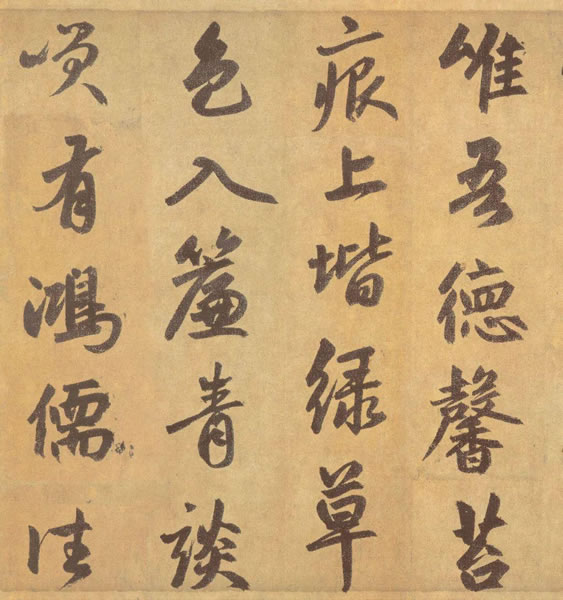 唯吾德馨苔
痕上堦緑草
色入簾青談
咲有鴻儒往